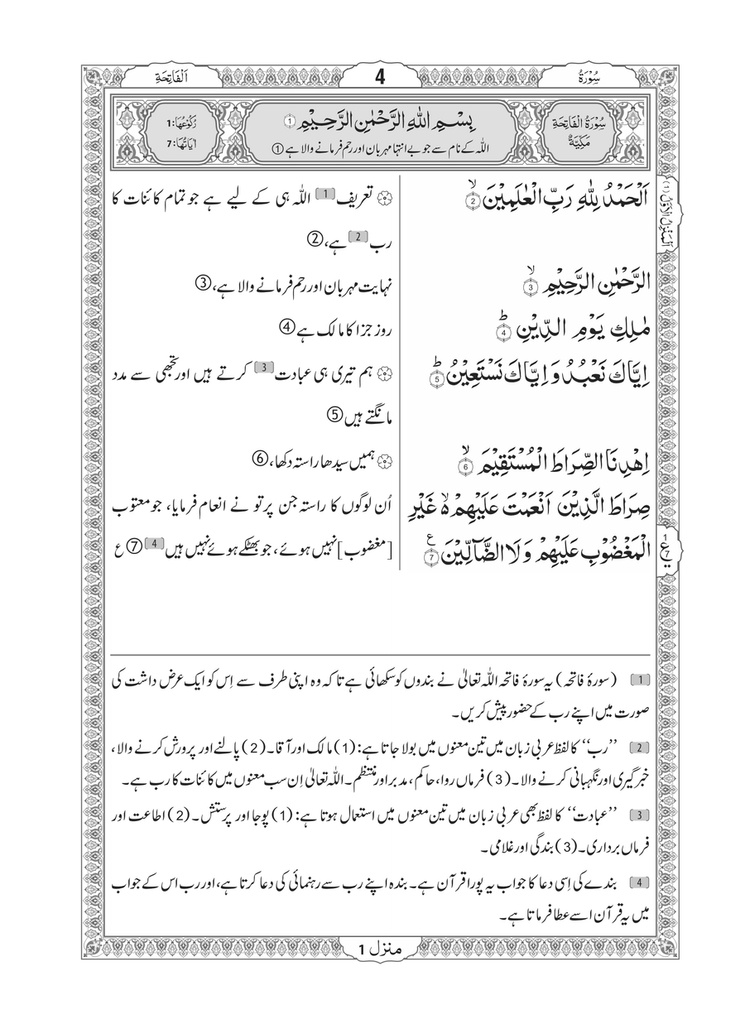 سُوْرَةُ 4 اَلْفَاتِحَةِ
سُوْرَةُ الْفَاتِحَةِ مَكِّيَّةٌ
بِسْمِ اللّٰهِ الرَّحْمٰنِ الرَّحِيْمِ ۝1
اللہ کے نام سے جو بے انتہا مہربان اور رحم فرمانے والا ہے ①
رُكُوْعُهَا: 1
اٰيَاتُهَا: 7
اَلْحَمْدُ لِلّٰهِ رَبِّ الْعٰلَمِيْنَ ۙ۝2
الرَّحْمٰنِ الرَّحِيْمِ ۙ۝3
مٰلِكِ يَوْمِ الدِّيْنِ ؕ۝4
اِيَّاكَ نَعْبُدُ وَ اِيَّاكَ نَسْتَعِيْنُ ؕ۝5
اِهْدِنَا الصِّرَاطَ الْمُسْتَقِيْمَ ۙ۝6
صِرَاطَ الَّذِيْنَ اَنْعَمْتَ عَلَيْهِمْ ۙ۬ غَيْرِ
الْمَغْضُوْبِ عَلَيْهِمْ وَ لَا الضَّآلِّيْنَ ۝7 ع
۞ تعریف [1] اللہ ہی کے لیے ہے جو تمام کائنات کا
رب [2] ہے، ②
نہایت مہربان اور رحم فرمانے والا ہے، ③
روز جزا کا مالک ہے ④
۞ ہم تیری ہی عبادت [3] کرتے ہیں اور تجھی سے مدد
مانگتے ہیں ⑤
۞ ہمیں سیدھا راستہ دکھا، ⑥
اُن لوگوں کا راستہ جن پر تو نے انعام فرمایا، جو معتوب
[مغضوب] نہیں ہوئے، جو بھٹکے ہوئے نہیں ہیں [4] ⑦ ع
اَلْمَنْزِلُ الْاَوَّلُ (1)
[1] (سورۂ فاتحہ) یہ سورۂ فاتحہ اللہ تعالیٰ نے بندوں کو سکھائی ہے تاکہ وہ اپنی طرف سے اِس کو ایک عرض داشت کی
صورت میں اپنے رب کے حضور پیش کریں۔
[2] ’’رب‘‘ کا لفظ عربی زبان میں تین معنوں میں بولا جاتا ہے: (1) مالک اور آقا۔ (2) پالنے اور پرورش کرنے والا،
خبر گیری اور نگہبانی کرنے والا۔ (3) فرماں روا، حاکم، مدبر اور منتظم۔ اللہ تعالیٰ اِن سب معنوں میں کائنات کا رب ہے۔
[3] ’’عبادت‘‘ کا لفظ بھی عربی زبان میں تین معنوں میں استعمال ہوتا ہے: (1) پوجا اور پرستش۔ (2) اطاعت اور
فرماں برداری۔ (3) بندگی اور غلامی۔
[4] بندے کی اِسی دعا کا جواب یہ پورا قرآن ہے۔ بندہ اپنے رب سے رہنمائی کی دعا کرتا ہے، اور رب اس کے جواب
میں یہ قرآن اسے عطا فرماتا ہے۔
منزل 1